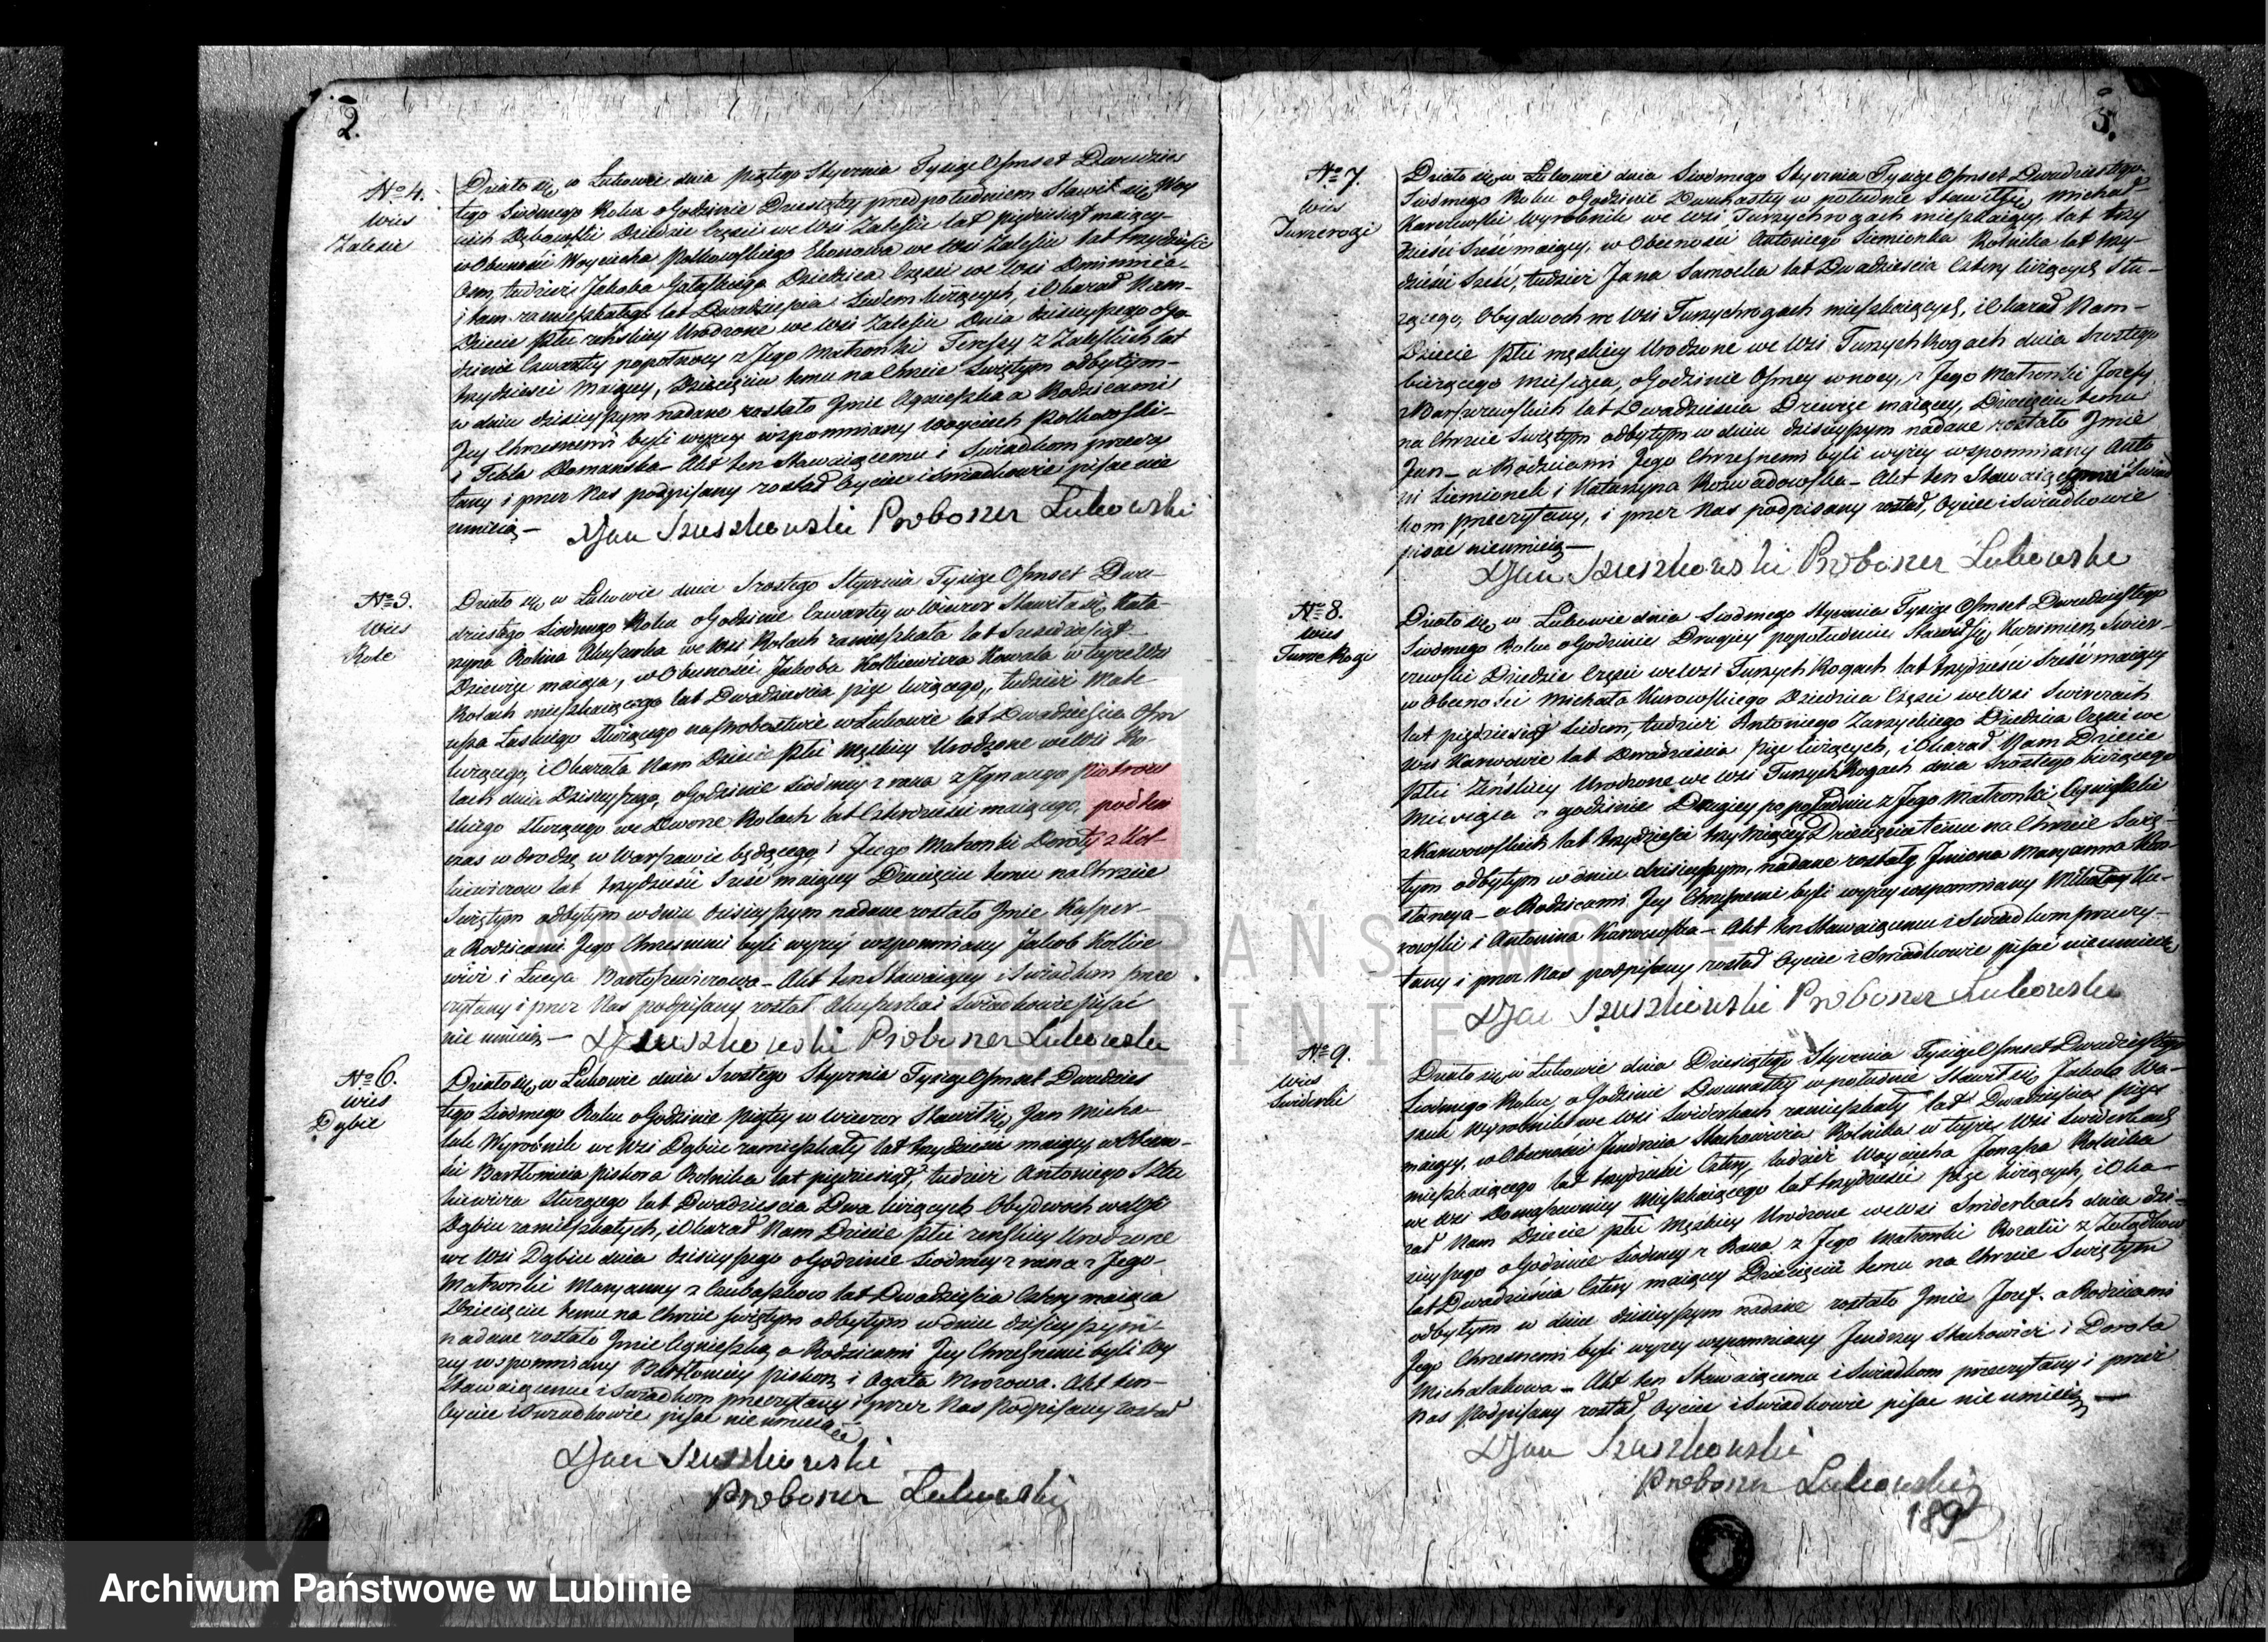 2.
No 4.
Wieś
Zalesie
Działo się w Łukowie dnia piątego Stycznia Tysiąc Osmset Dwudzies
tego Siodmego Roku o Godzinie Dziesiątey przed południem Stawił się Woy
ciech Dębowski Dziedzic Części we Wsi Zalesiu lat pięćdziesiąt maiący
w Obecności Woyciecha Rolkowskiego Ekonoma we Wsi Zalesiu lat trzydzieści
Osm, tudzież Jakoba Dziedzica Części we Wsi
i tam zamieszkałego lat Dwadzieścia Siedem liczących, i Okazał Nam
Dziecie płci żeńskiey Urodzone we Wsi Zalesiu Dnia dzisieyszego o Go
dzinie Czwartey popołnocy z Jego Małżonki Teressy z Zaleskich lat
trzydzieści maiącey, Dziecięciu temu na Chrzcie Świętym odbytym
w dniu dzisieyszym nadane zostało Imie Agnieszka a Rodzicami
Jey Chrzesnemi byli wyżey wspomniany Woyciech Rolkowski
i Tekla Domańska – Akt ten Stawaiącemu i Świadkom przeczy
tany i przez Nas podpisany został Oyciec i Świadkowie pisać nie
umieią –
XJan Szuszkowski Proboszcz Łukowski
No 5.
Wieś
Role
Działo się w Łukowie dnia Szostego Stycznia Tysiąc Osmset Dwu-
dziestego Siodmego Roku o Godzinie Czwartey w Wieczor Stawiła się Kata-
rzyna Rolina Akuszerka we Wsi Rolach zamieszkała lat Sześćdziesiąt
Dziewięć maiąca, w Obecności Jakoba Kotkiewicza Kowala w teyże Wsi
Rolach mieszkaiącego lat Dwadzieścia pięć liczącego, tudzież Mate
usza Łaskiego Służącego na Probostwie w Łukowie lat Dwadzieścia Osm
liczącego, i Okazała Nam Dziecie płci męskiey Urodzone we Wsi Ro-
lach dnia Dzisieyszego, o Godzinie Siodmey z rana z Ignacego Piotrow
skiego Służącego we Dworze Rolach lat Czterdzieści maiącego, pod ten
czas w drodze w Warszawie będącego i Jego Małżonki Doroty z Kot-
kiewiczow lat trzydzieści Sześć maiącey Dziecięciu temu na Chrzcie
Świętym odbytym w dniu dzisieyszym nadane zostało Imie Kasper –
a Rodzicami Jego Chrzesnemi byli wyżey wspomniany Jakob Kotkie
wicz i Łucya Bartoszewiczowa – Akt ten Stawaiącey i Świadkom prze
czytany i przez Nas podpisany został Akuszerka i Świadkowie pisać
nie umieią –
XJ Szuszkowski Proboszcz Łukowski
No 6.
Wieś
Dąbie
Działo się w Łukowie dnia Szostego Stycznia Tysiąc Osmset Dwudzies
tego Siodmego Roku o Godzinie piątey w Wieczor Stawił się Jan Micha
lak Wyrobnik we Wsi Dąbiu zamieszkały lat trzydzieści maiący, w Obecno-
ści Bartłomieia Piskorza Rolnika lat pięćdziesiąt, tudzież Antoniego
Służącego lat Dwadzieścia Dwa liczących Obydwoch we Wsi
Dąbiu zamieszkałych, i Okazał Nam Dziecie płci żeńskiey Urodzone
we Wsi Dąbiu dnia dzisieyszego o Godzinie Siodmey z rana z Jego
Małżonki Maryanny z Czubaszkow lat Dwadzieścia Cztery maiąca
Dziecięciu temu na Chrzcie Świętym odbytym w dniu dzisieyszym
nadane zostało Imie Agnieszka, a Rodzicami Jey Chrzesnemi byli wy
żey wspomniany Bartłomiey Piskorz i Agata Mrozowa. Akt ten
Stawaiącemu i Świadkom przeczytany i przez Nas Podpisany został
Oyciec i Świadkowie pisać nie umieią –
XJan Szuszkowski
Proboszcz Łukowski
3.
No 7.
Wieś
Turzerogi
Działo się w Łukowie dnia Siodmego Stycznia Tysiąc Osmset Dwudziestego
Siodmego Roku o Godzinie Dwunastey w południe Stawił się Michał
Karolewski Wyrobnik we Wsi Turzychrogach mieszkaiący, lat trzy
dzieści Sześć maiący, w Obecności Antoniego Siemionka Rolnika lat trzy-
dzieści Sześć, tudzież Jana Samoćka lat Dwadzieścia Cztery liczących Słu-
żącego, Obydwoch we Wsi Turzychrogach mieszkaiących, i Okazał Nam
Dziecie płci męskiey Urodzone we Wsi Turzych Rogach dnia Szostego
bieżącego Miesiąca, o Godzinie Osmey w nocy, z Jego Małżonki Jozefy
z lat Dwadzieścia Dziewięć maiącey, Dziecięciu temu
na Chrzcie Świętym odbytym w dniu dzisieyszym nadane zostało Imie
Jan – a Rodzicami Jego Chrzesnemi byli wyżey wspomniany Anto
ni Siemionek i Katarzyna Rozwadowska – Akt ten Stawaiącemu i Świad
kom przeczytany, i przez Nas podpisany został, Oyciec i Świadkowie
pisać nieumieią –
XJan Szuszkowski Proboszcz Łukowski
No 8.
Wieś
Turze Rogi
Działo się w Łukowie dnia Siodmego Stycznia Tysiąc Osmset Dwudziestego
Siodmego Roku o Godzinie Drugiey popołudniu Stawił się Kazimierz Świer-
czewski Dziedzic Części we Wsi Turzych Rogach lat trzydzieści Sześć maiący
w Obecności Michała Kurowskiego Dziedzica Części we Wsi Świerczach
lat pięćdziesiąt Siedem, tudzież Antoniego Zarzyckiego Dziedzica Części we
Wsi Karwowie lat Dwadzieścia pięć liczących, i Okazał Nam Dziecie
Płci Żeńskiey Urodzone we Wsi Turzych Rogach dnia Szostego bieżącego
Miesiąca o godzinie Drugiey popołudniu z Jego Małżonki Agnieszki
z Karwowskich lat trzydzieści trzy maiącey Dziecięciu temu na Chrzcie Świę-
tym odbytym w dniu dzisieyszym, nadane zostały Imiona Maryanna Kon-
stancya – a Rodzicami Jey Chrzesnemi byli wyżey wspomniany Mikołay Ku-
rowski i Antonina Karwowska – Akt ten Stawaiącemu i Świadkom przeczy-
tany i przez Nas podpisany został Oyciec i Świadkowie pisać nie umieią
XJan Szuszkowski Proboszcz Łukowski
No 9.
Wieś
Świderki
Działo się w Łukowie dnia Dziesiątego Stycznia Tysiąc Osmset Dwudziestego
Siodmego Roku, o Godzinie Dwunastey w południe Stawił się Jakob
Wyrobnik we Wsi Świderkach zamieszkały lat Dwadzieścia pięć
maiący, w Obecności Jendrzeia Stachowicza Rolnika w teyże Wsi Świderkach
mieszkaiącego lat trzydzieści Cztery, tudzież Woyciecha Jonasza Rolnika
we Wsi mieszkaiącego lat trzydzieści pięć liczących, i Oka-
zał Nam Dziecie płci Męskiey Urodzone we Wsi Świderkach dnia dzi-
sieyszego o Godzinie Siodmey z Rana z Jego Małżonki Rozalii z
lat Dwadzieścia Cztery maiącey Dziecięciu temu na Chrzcie Świętym
odbytym w dniu dzisieyszym nadane zostało Imie Jozef. a Rodzicami
Jego Chrzesnemi byli wyżey wspomniany Jendrzey Stachowicz i Dorota
Michalakowa – Akt ten Stawaiącemu i Świadkom przeczytany i przez
Nas Podpisany został, Oyciec i Świadkowie pisać nie umieią –
XJan Szuszkowski
Proboszcz Łukowski
189
ARCHIWUM PAŃSTWOWE
W LUBLINIE
Archiwum Państwowe w Lublinie